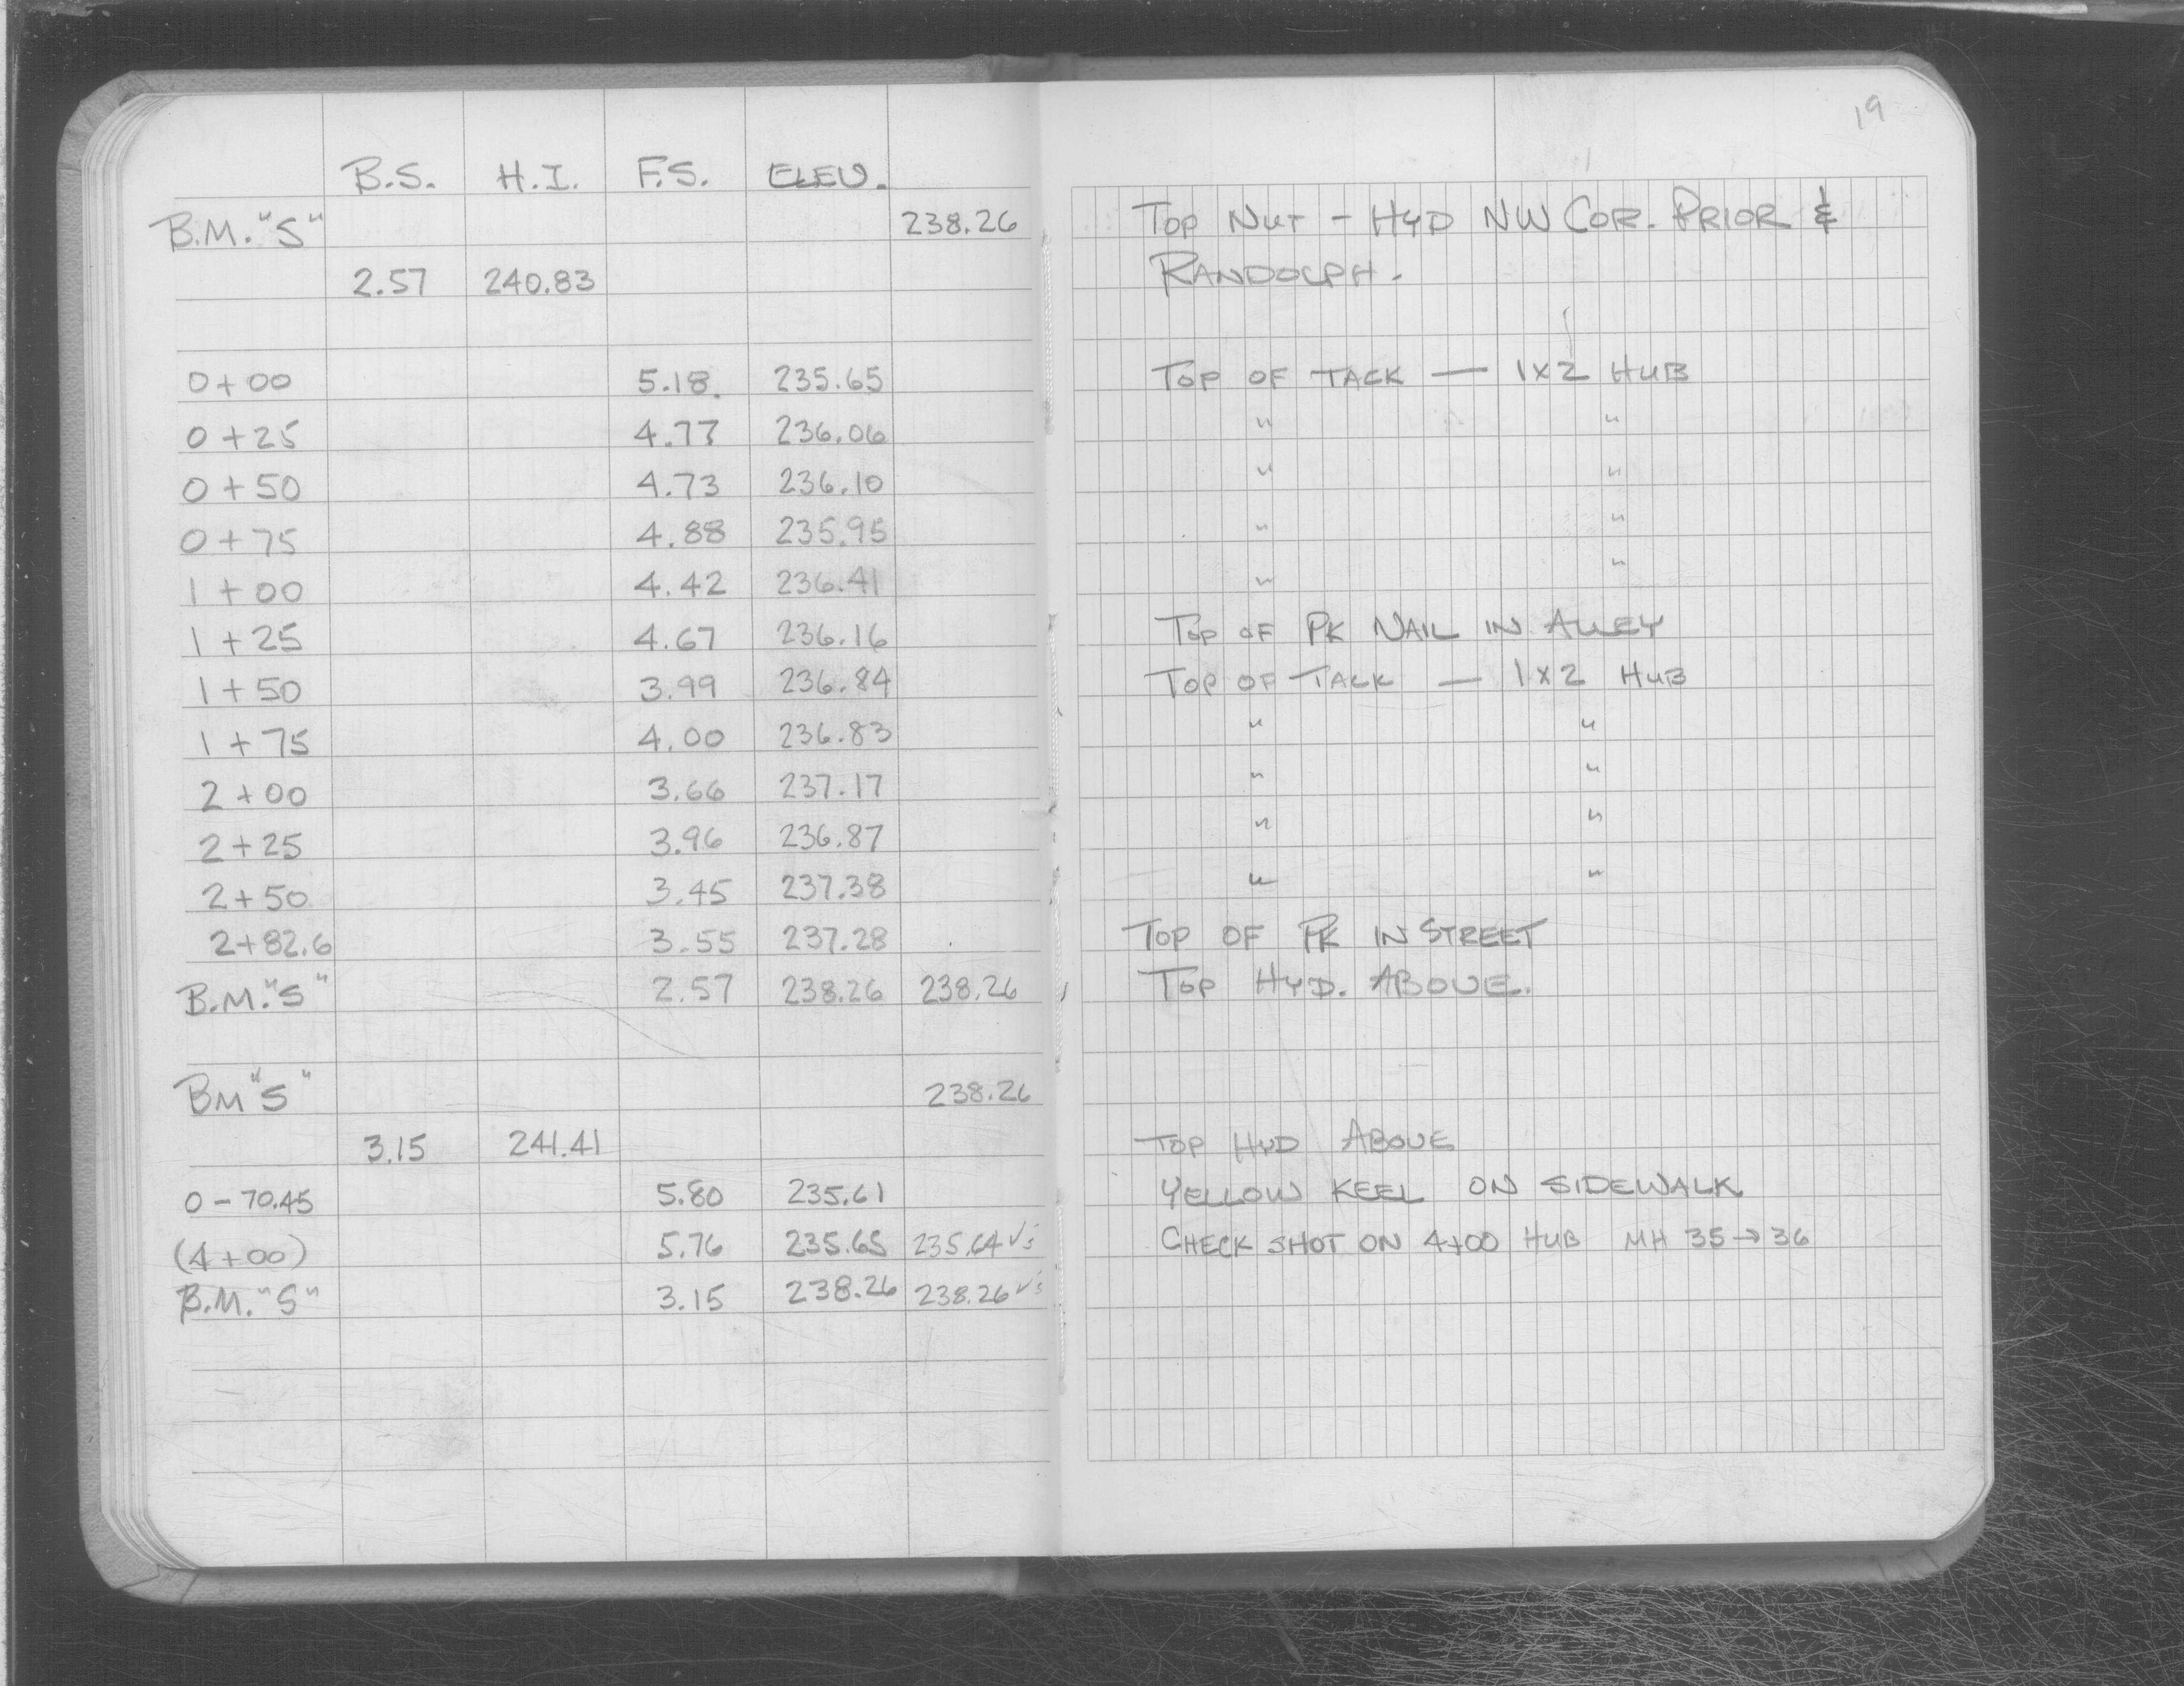 19
B.S. H.I. F.S. ELEV.
B.M. "S" 238.26 TOP NUT - HYD NW COR. PRIOR &
2.57 240.83 RANDOLPH.
0+00 5.18 235.65 TOP OF TACK — 1X2 HUB
0+25 4.77 236.06 " "
0+50 4.73 236.10 " "
0+75 4.88 235.95 " "
1+00 4.42 236.41 " "
1+25 4.67 236.16 TOP OF PK NAIL IN ALLEY
1+50 3.99 236.84 TOP OF TACK — 1X2 HUB
1+75 4.00 236.83 " "
2+00 3.66 237.17 " "
2+25 3.96 236.87 " "
2+50 3.45 237.38 " "
2+82.6 3.55 237.28 TOP OF PK IN STREET
B.M. "S" 2.57 238.26 238.26 TOP HYD. ABOVE.
BM "S" 238.26
3.15 241.41 TOP HYD ABOVE
0-70.45 5.80 235.61 YELLOW KEEL ON SIDEWALK
(4+00) 5.76 235.65 235.64 √'s CHECK SHOT ON 4+00 HUB MH 35→36
B.M. "S" 3.15 238.26 238.26 √'s